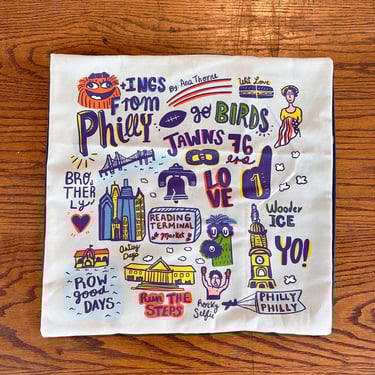 INGS
By: Ana Thorne
Wit Love
FROM
Philly
go BIRDS
JAWNS
76
ers
BRO
THER
LY
LO
VE
READING
TERMINAL
Market
Wooder
ICE
YO!
Artsy
Days
ROW
good
DAYS
Run THE
STEPS
Rocky
Selfie
PHILLY
PHILLY